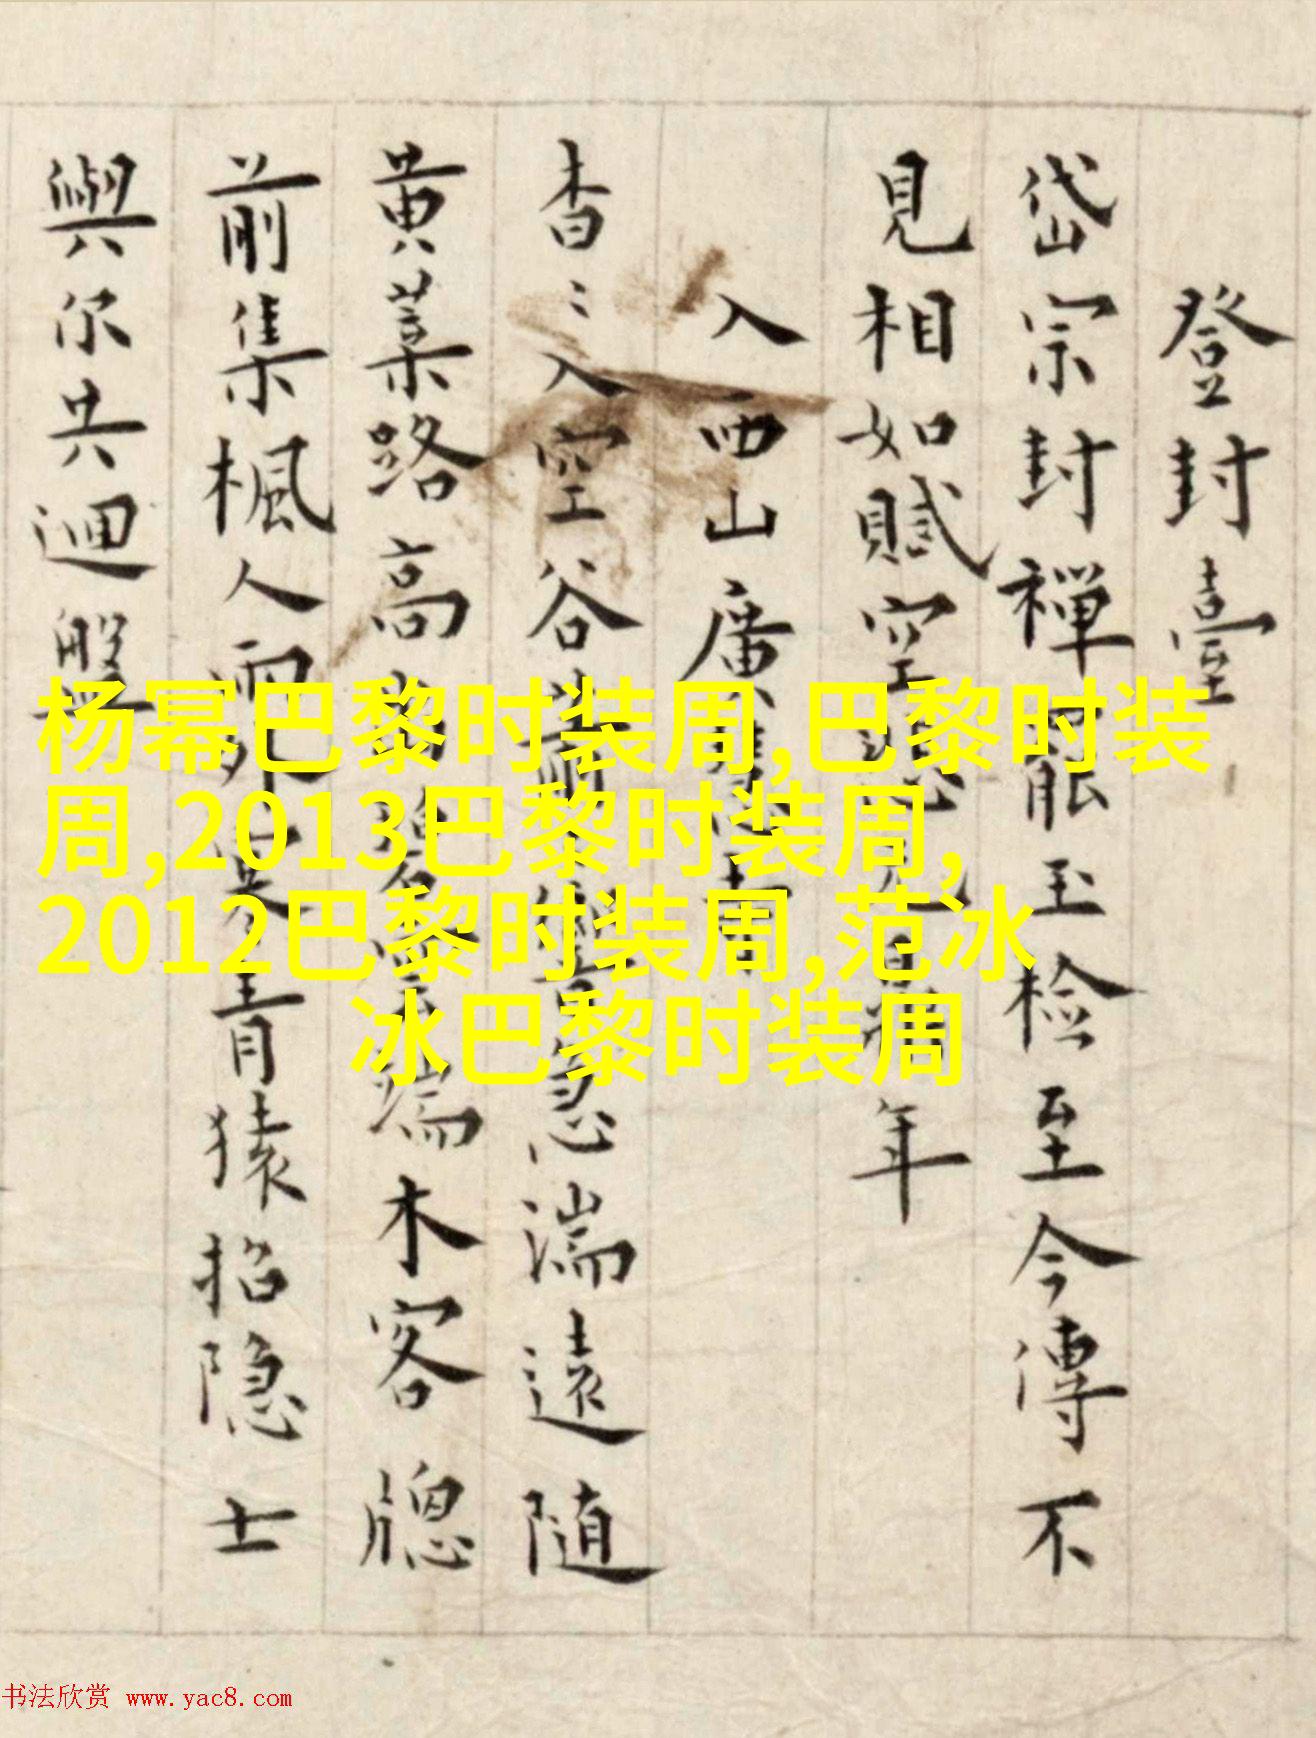 登封臺
岱宗封禪罷玉检至今傳不
見相如賦空年
入西山廣
杳〻入空谷急湍遠随
黄葉路高端木客牕
前集楓人雨外青猿招隐士
與尔共迴盤
杨幂巴黎时装周,巴黎时装
周,2013巴黎时装周,
2012巴黎时装周,范冰
冰巴黎时装周
书法欣赏 www.yac8.com